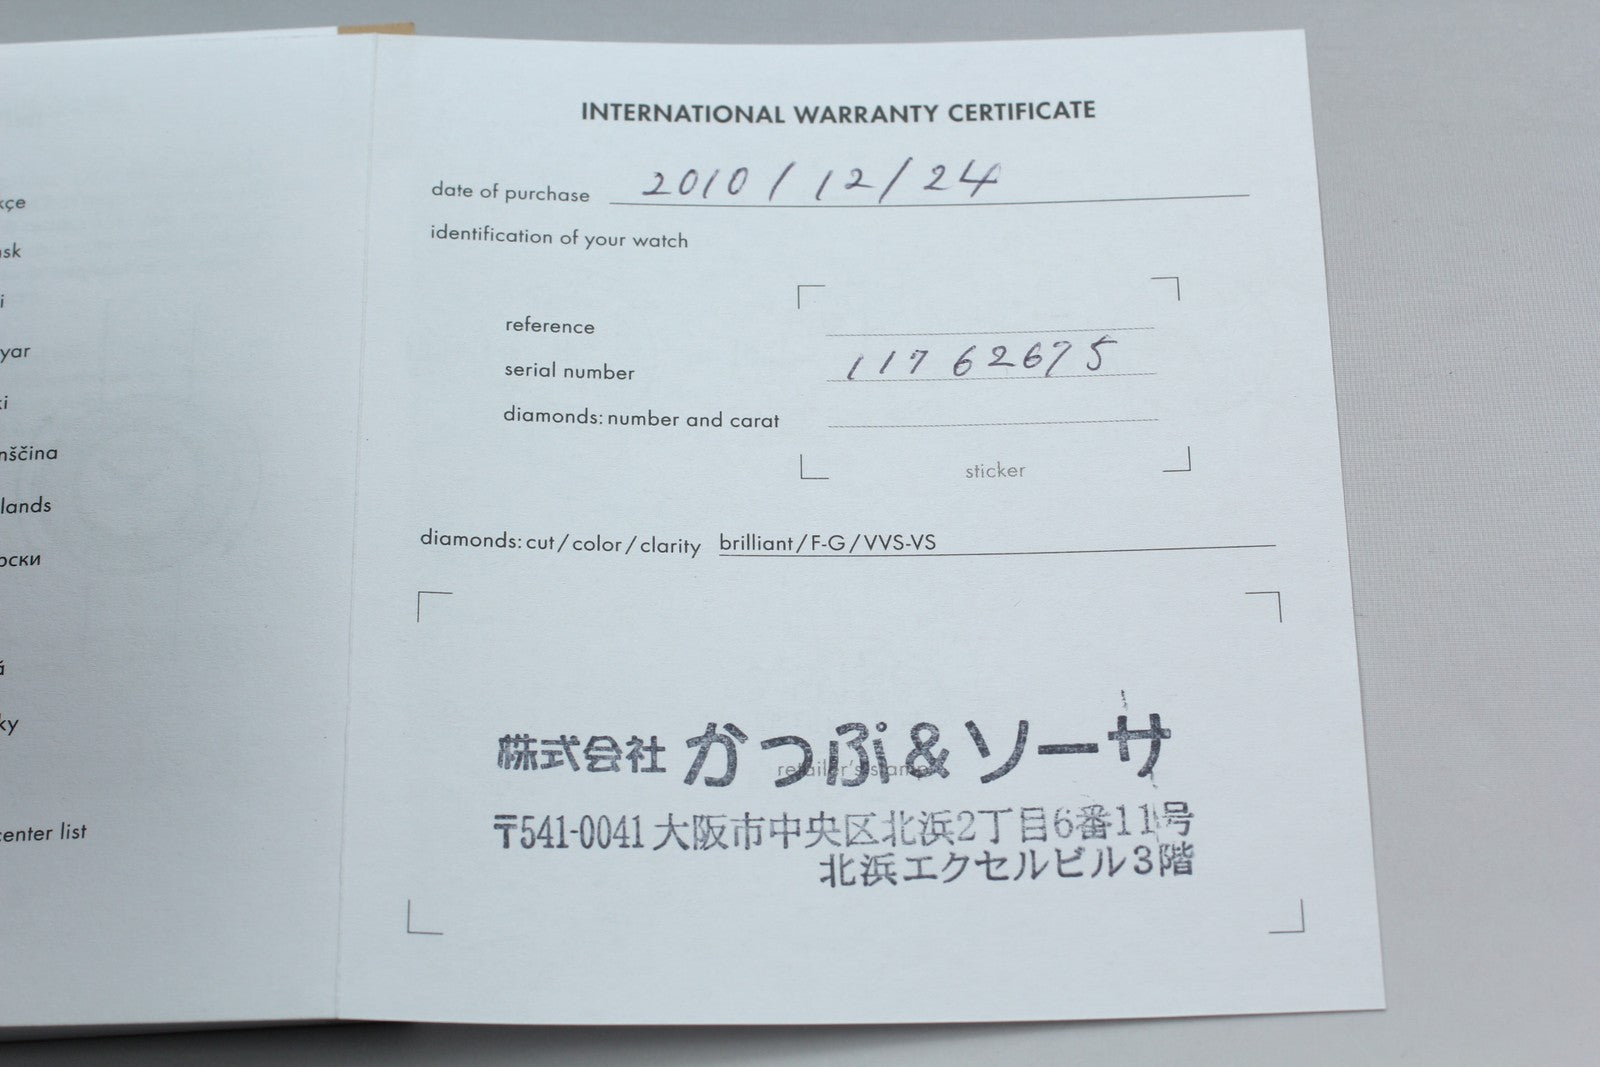 kçe
nsk
i
yar
ki
nščina
lands
рски
á
ky
center list
INTERNATIONAL WARRANTY CERTIFICATE
date of purchase 2010 / 12 / 24
identification of your watch
reference
serial number 11762675
diamonds: number and carat
sticker
diamonds: cut / color / clarity brilliant / F-G / VVS-VS
株式会社 かつぷ&ソーサ
retailer's stamp
〒541-0041 大阪市中央区北浜2丁目6番11号
北浜エクセルビル3階